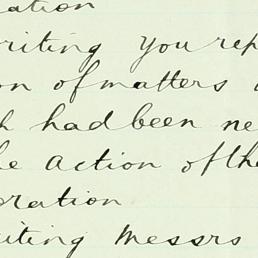 ation
riting you rep
on of matters
h had been ne
he action of the
oration
iting Messrs